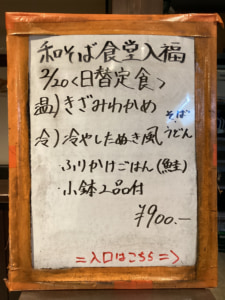 和そば食堂入福
2/20<日替定食>
温)きざみわかめ
そば
冷)冷やしたぬき風 うどん
ふりかけごはん(鮭)
小鉢2品付
¥900.-
=入口はこちら=>